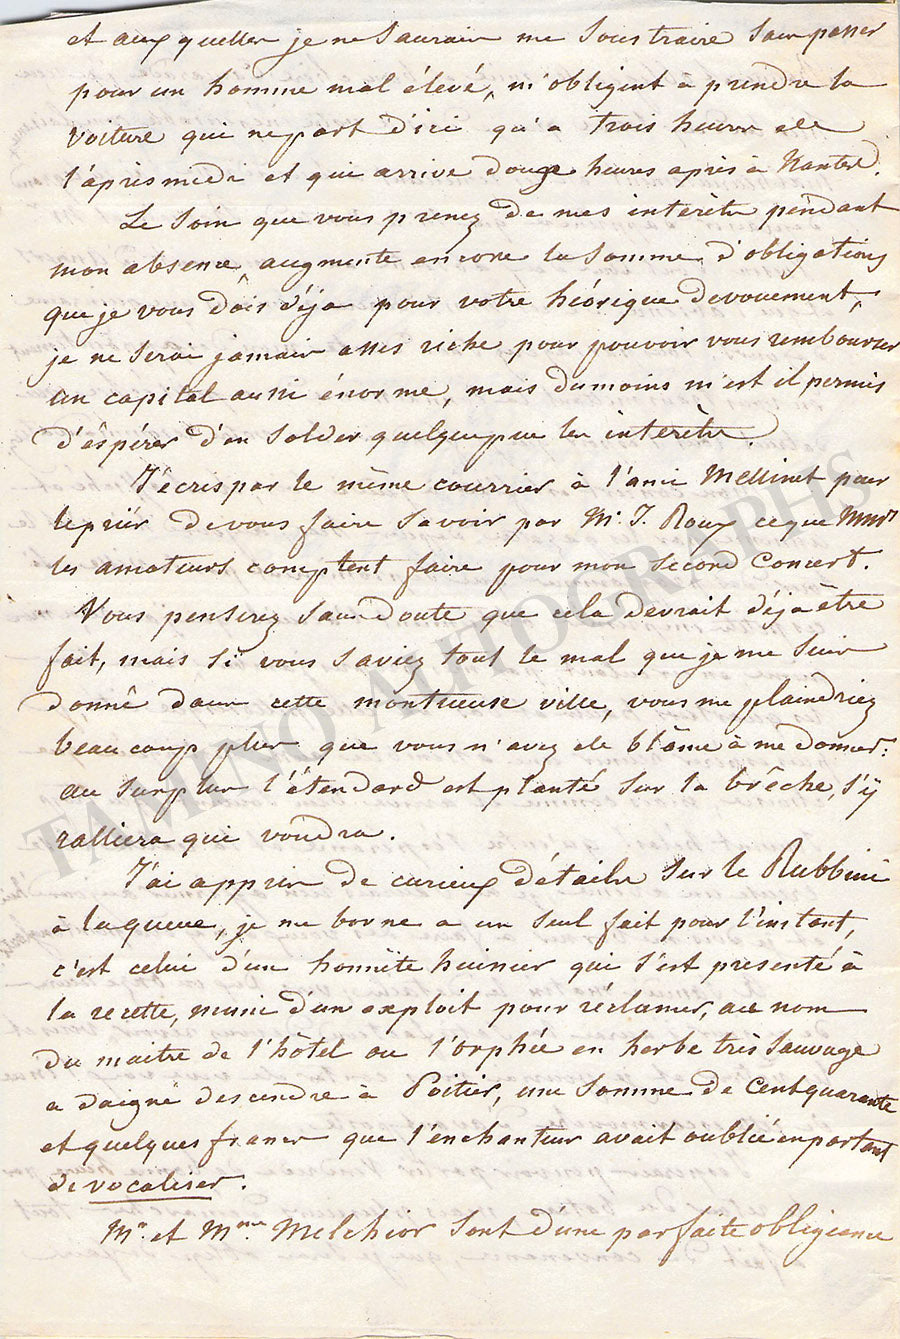 et aux quelles je ne Saurais me Soustraire Sans passer
pour un homme mal élevé, m'obligent a prendre la
Voiture qui ne part d'ici qu'a trois heures de
l'après midi et qui arrive douze heures après à Nantes.
Le Soin que vous prenez de mes interêts pendant
mon absence, augmente encore la Somme d'obligations
que je vous dois déja pour votre héorique dévouement,
je ne Serai jamais assés riche pour pouvoir vous rembourser
un capital aussi énorme, mais du moins m'est il permis
d'éspérer d'en Solder quelque peu les interêts.
J'écris par le même courrier à l'ami Mellinet pour
le priér de vous faire Savoir par Mr. J. Roux ce que Mmrs
les amateurs comptent faire pour mon Second Concert.
Vous penserez Sans doute que cela devrait déja être
fait, mais Si vous Saviez tout le mal que je me Suis
donné dans cette montueuse ville, vous me plaindriez
beaucoup plus que vous n'avez de blâme à me donner:
au Surplus l'étendard est planté Sur la brêche, S'ÿ
ralliera qui voudra.
J'ai appris de curieux détails Sur le Rubbini
à la queue, je me borne a un Seul fait pour l'instant,
c'est celui d'un honnête huissier qui S'est présenté à
la recette, muni d'un exploit pour réclamer, au nom
du maitre de l'hôtel ou l'orphée en herbe très Sauvage
a daigné descendre à Poitier, une Somme de Cent quarante
et quelques francs que l'enchanteur avait oublié en partant
de vocaliser.
Mr. et Mme. Melchior Sont d'une parfaite obligeance
TAMINO AUTOGRAPHS